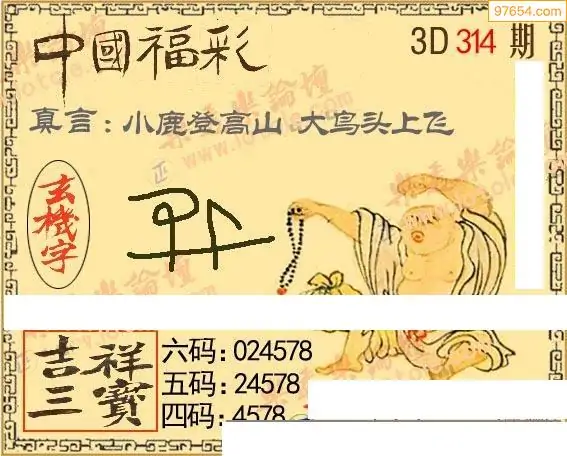 97654.com
中國福彩
3D 314 期
真言：小鹿登高山 大鸟头上飞
玄機字
吉祥三寶
六码:024578
五码:24578
四码:4578